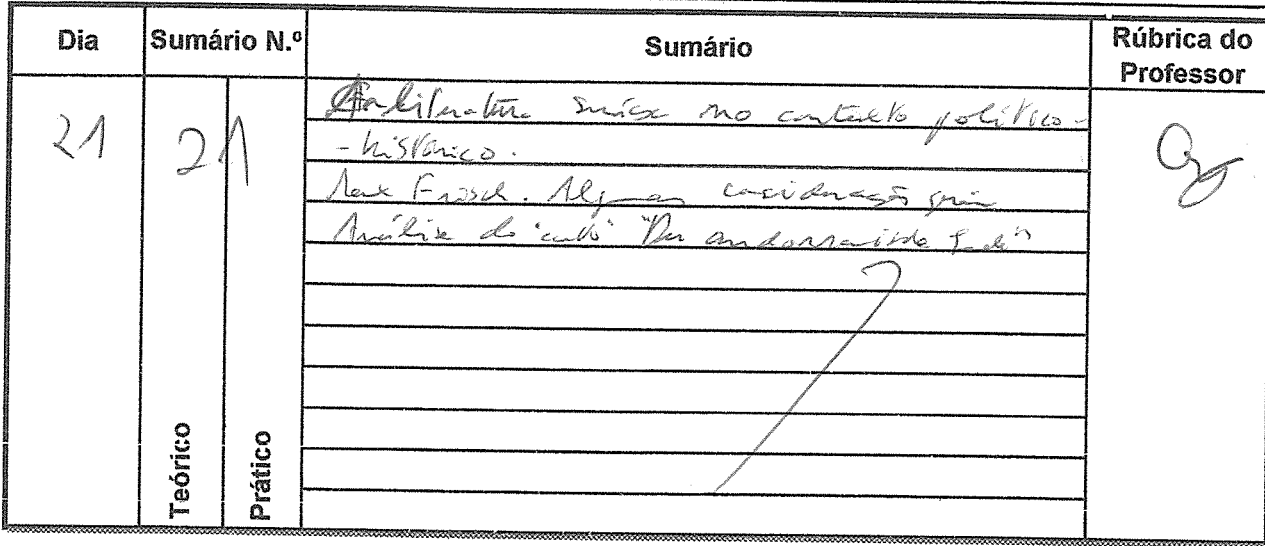 Dia
Sumário N.º
Sumário
Rúbrica do
Professor
21
21
A literatura suíça no contexto político-
-histórico.
Max Frisch. Algumas considerações
Análise do "conto" "Der andorranische Jude"
Teórico
Prático